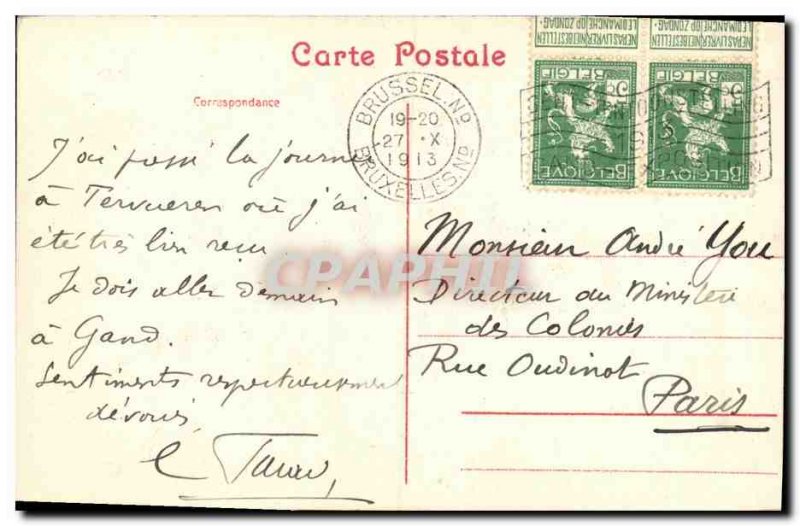 Carte Postale
NE PAS LIVRER NIET BESTELLEN
LE DIMANCHE OP ZONDAG
NE PAS LIVRER NIET BESTELLEN
LE DIMANCHE OP ZONDAG
BELGIË
5
BELGIQUE
BELGIË
5
BELGIQUE
BRUSSEL.ND
19-20
27 X
1913
BRUXELLES.ND
Correspondance
J'ai passé la journée
à Tervueren où j'ai
été très bien reçu
Je dois aller demain
à Gand.
Sentiments respectueusement
dévoués
CPAPHIL
Monsieur André You
Directeur au Ministère
des Colonies
Rue Oudinot
Paris